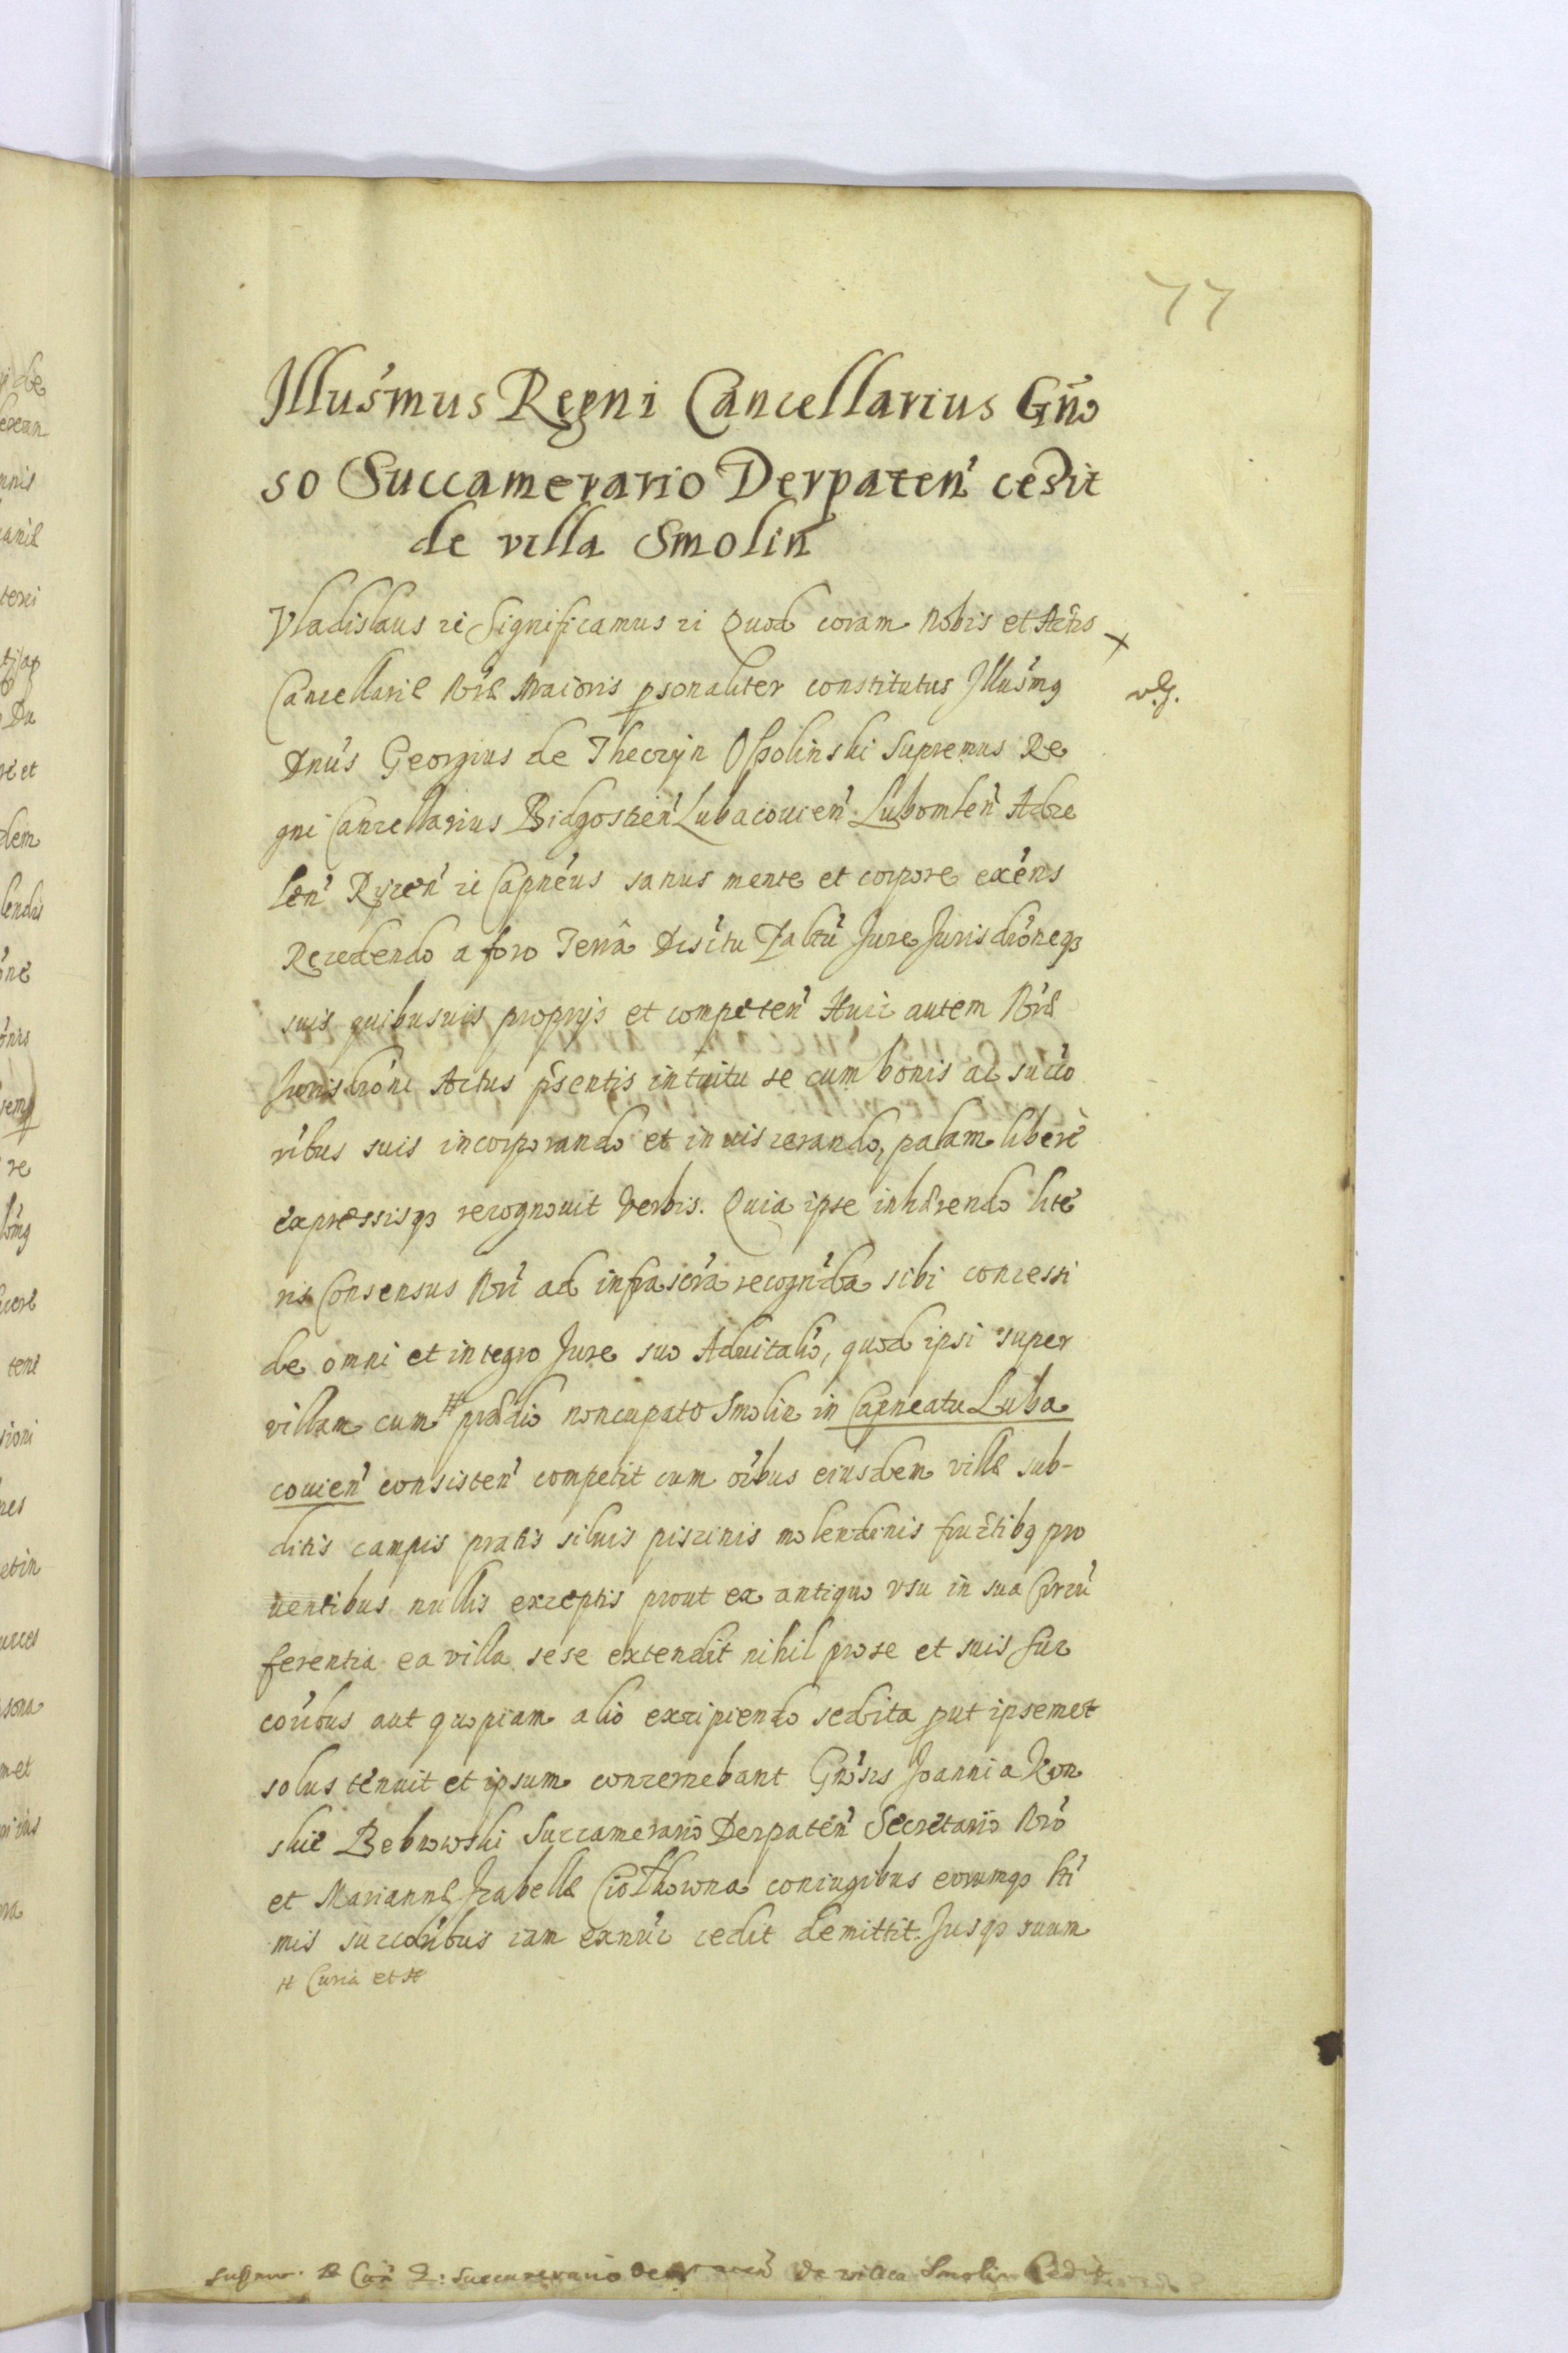 77
Illus̃mus Regni Cancellarius Gño
so Succamerario Derpaten̄ cedit
de villa Smolin
Vladislaus zc Significamus zc Quod coram Nobis et Actis
Cancellariæ Nr̄æ Maioris p̱sonaliter constitutus Illus̃mꝰ
Dñus Georgius de Thecryn Ossolinski Supremus Re
gni Cancellarius Bidgostien̄ Lubacovien̄ Lubomlen̄ Adze
len̄ Rycen̄ zc Capñeus sanus mente et corpore exẽns
Recedendo a foro Terrã Distr̃tu Pal̃tu Jure Jurisdr̃oneqꝫ
suis quibusuis proprijs et competen̄ Huic autem Nr̄æ
Jurisdr̃oni Actus p̃sentis intuitu se cum bonis ac succo
ribus suis incorporando et inuiscerando, palam liberè
expressisqꝫ recognouit Verbis. Quia ipse inhærendo litẽ
ris Consensus Nr̄i ad infrascr̃a recogñda sibi concessi
de omni et integro Jure suo Aduitalõ, quod ipsi super
villam cum # prædio noncupato Smolin in Capneatu Luba
couien̄ consisten̄ competit cum oĩbus eiusdem villæ sub-
ditis campis pratis siluis piscinis molendinis fructibꝰ pro
uentibus nullis exceptis prout ex antiquo vsu in sua Circũ
ferentia ea villa sese extendit nihil pro se et suis suc
cor̃ibus aut quopiam alio excipiendo sed ita p̱ut ipsemet
solus tenuit et ipsum concernebant Gñosis Joanni a Kon
skie Bebnowski Succamerario Derpaten̄ Secretario Nr̃o
et Mariannæ Izabellæ Ciołkowna coniugibus eorumqꝫ lti
mis succor̃ibus iam exnũc cedit demittit. Jusqꝫ suum
# Curia et #
vlg.
de villa Smolin Cedit